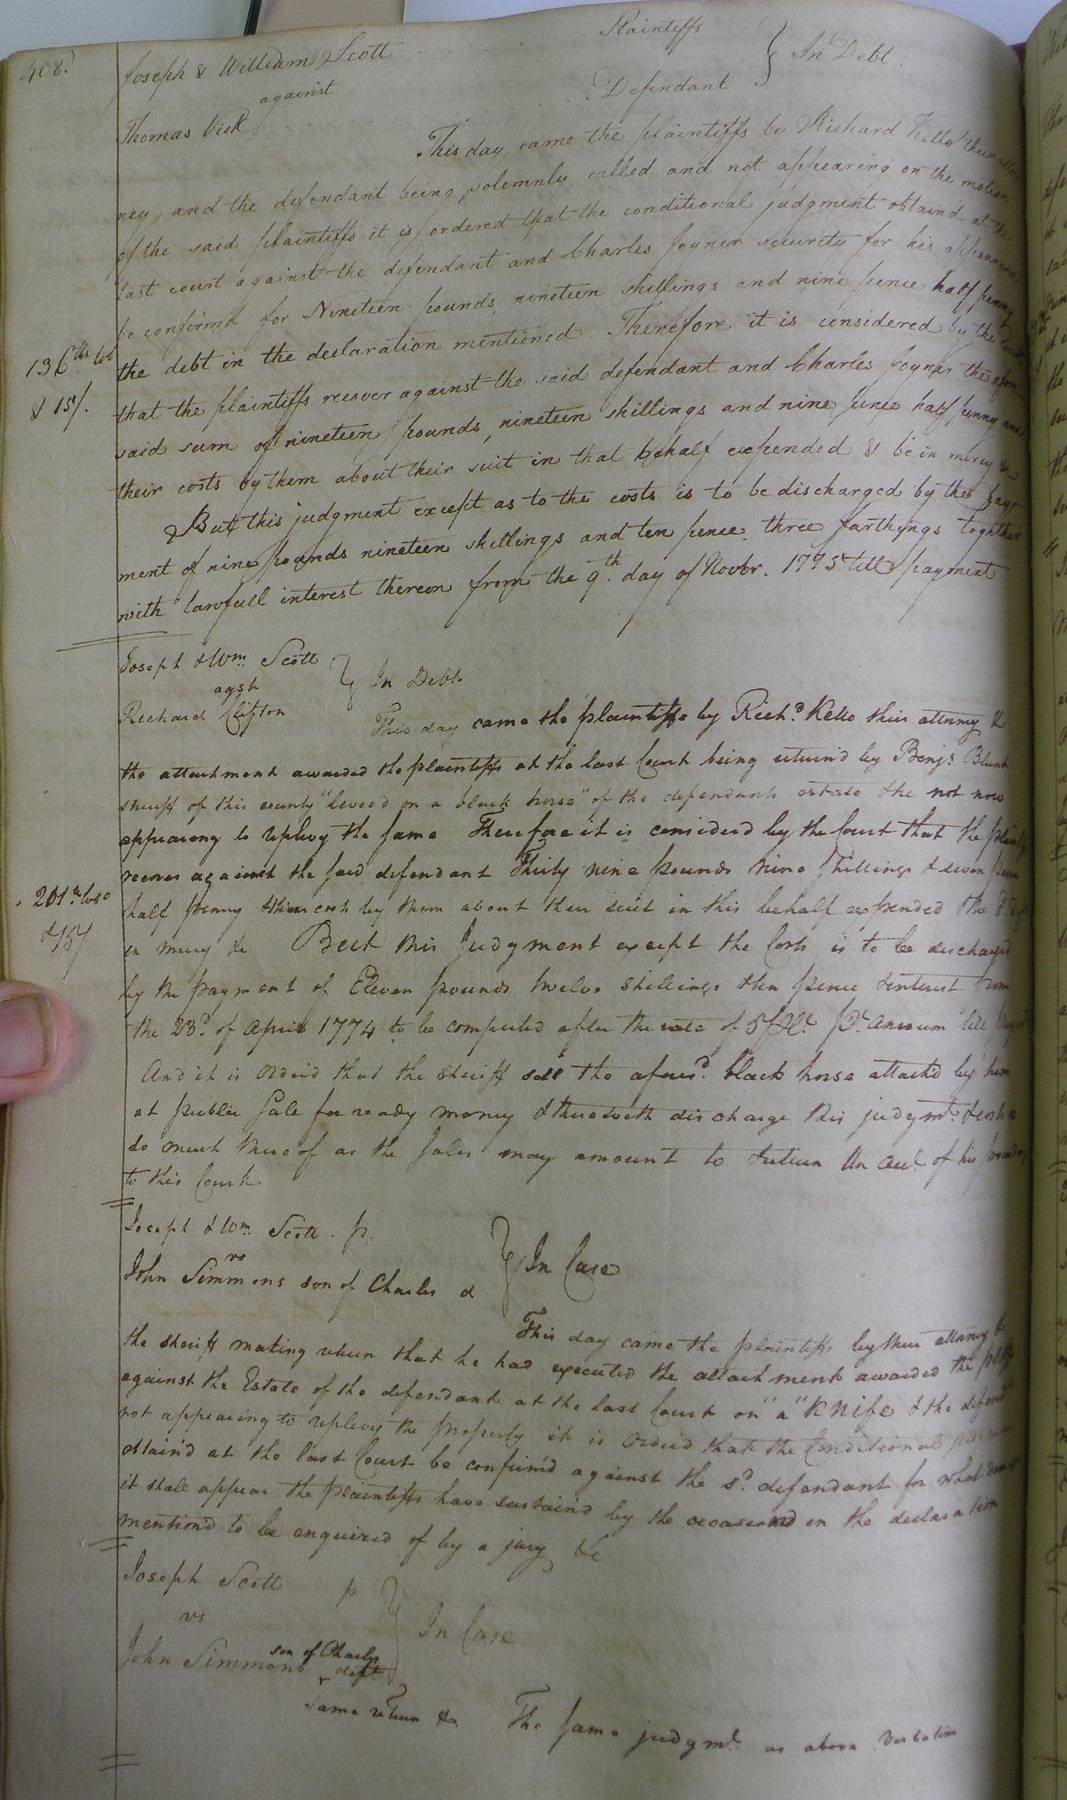 408.
Joseph & William Scott Plaintiffs
against In Debt.
Thomas Vick Defendant
This day came the plaintiffs by Richard Kello their attor
ney, and the defendant being solemnly called and not appearing on the motion
of the said plaintiffs it is ordered that the conditional judgment obtaind at the
last court against the defendant and Charles Joyner security for his appearance
be confirmed for Nineteen pounds, nineteen shillings and nine pence half penny
the debt in the declaration mentioned. Therefore it is considered by the Court
136 lbs Tobo
& 15/.
that the plaintiffs recover against the said defendant and Charles Joyner the afore
said sum of nineteen pounds, nineteen shillings and nine pence half penny and
their costs by them about their suit in that behalf expended & be in mercy &c
But this judgment except as to the costs is to be discharged by the pay
ment of nine pounds nineteen shillings and ten pence three farthings together
with lawfull interest thereon from the 9th. day of Novbr. 1775 till payment
Joseph & Wm Scott
agst In Debt
Richard Clifton
This day came the plaintiffs by Richd. Kello their attorney &
the attachment awarded the plaintiffs at the last Court being returnd by Benja Blunt
sheriff of this county "levied on a black horse" of the defendants estate the not now
appearing to replevy the same Therefore it is considerd by the Court that the plaintiffs
recover against the said defendant Thirty nine pounds nine shillings & seven pence
201 lbs Tobo
& 15/
half penny & their costs by them about their suit in this behalf expended & the
in mercy &c But this Judgment except the Costs is to be discharged
by the payment of Eleven pounds twelve shillings ten pence & interest from
the 23d. of April 1774 to be computed after the rate of 5 per Ct. pr. annum till
And it is orderd that the sheriff sell the afsd. black horse attachd by him
at public sale for ready money & therewith discharge this judgmt. & costs or
so much thereof as the sales may amount to & return an acct. of his proceedings
to this Court
Joseph & Wm Scott. p.
vs In Case
John Simmons son of Charles d
This day came the plaintiffs by their attorney &
the sheriff making return that he had executed the attachment awarded the plfs
against the Estate of the defendant at the last Court on "a" Knife & the defendant
not appearing to replevy the property it is orderd that the Conditional judgment
obtain'd at the last Court be confirm'd against the sd. defendant for what damages
it shall appear the plaintiffs have sustain'd by the occasion in the declaration
mention'd to be enquired of by a jury &c
Joseph Scott p
vs In Case
John Simmons son of Charles deft
Same return &c The same judgmt. as above Verbatim